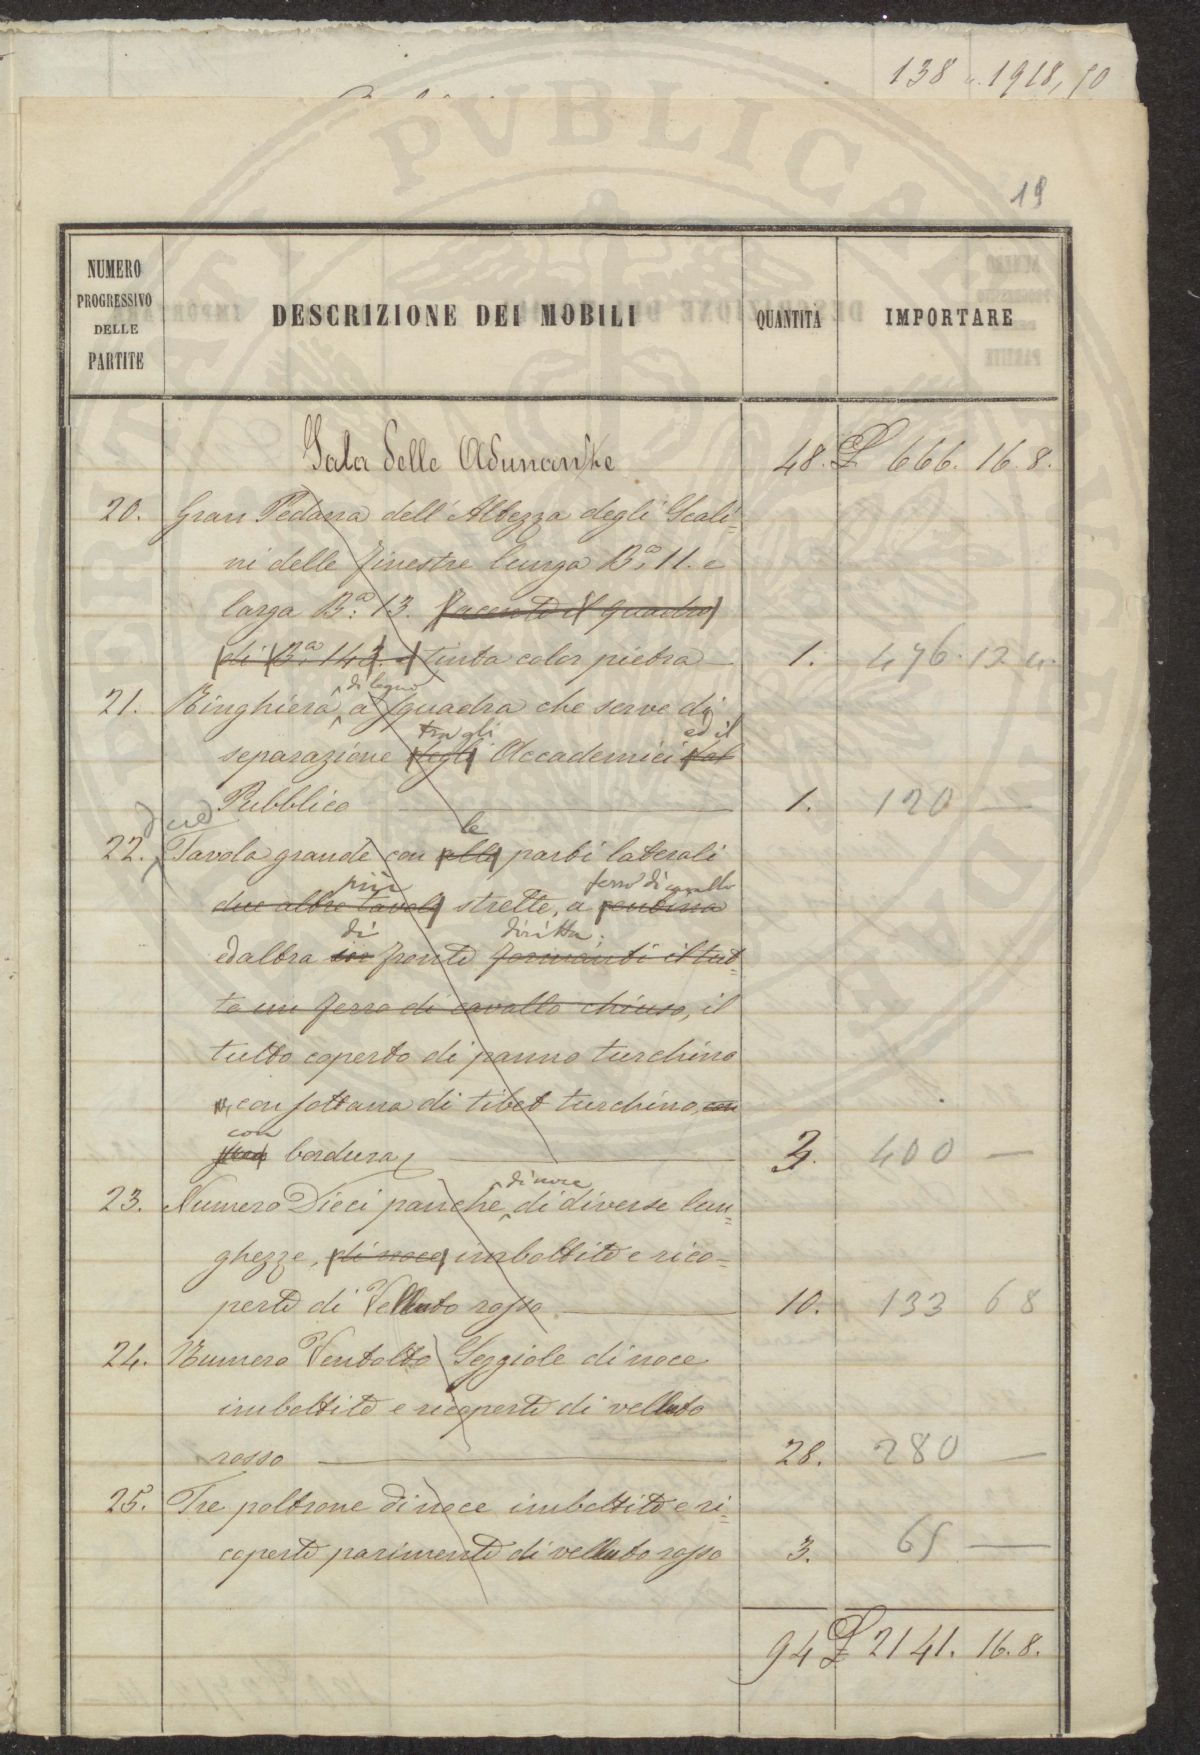 138 . 1918,50
19
NUMERO PROGRESSIVO DELLE PARTITE
DESCRIZIONE DEI MOBILI
QUANTITÀ
IMPORTARE
Sala delle Adunanze 48. £ 666. 16. 8.
20. Gran Pedana dell' Altezza degli Scali=
ni delle finestre lunga B.a 11. e
larga B.a 13. facente il quadro
di B.a 143. e tinta color pietra 1. 476. 13 4
21. Ringhiera di legno a squadra che serve di
separazione degli tra gli Accademici dal ed il
Pubblico 1. 120 —
22. due Tavola grande con alle le parti laterali
due altre tavole più strette, a centina ferro di cavallo
ed altra in di fronte diritta; formanti il tut=
to un ferro di cavallo chiuso, il
tutto coperto di panno turchino
con sottana di tibet turchino, con
con bordura 3. 400 —
23. Numero Dieci panche di noce di diverse lun=
ghezze, di noce, imbottite e rico=
perte di Velluto rosso 10. 133 6 8
24. Numero Ventotto Seggiole di noce
imbottite e ricoperte di velluto
rosso 28. 280 —
25. Tre poltrone di noce imbottite e ri=
coperte parimente di velluto rosso 3. 65 —
94 £ 2141. 16. 8.